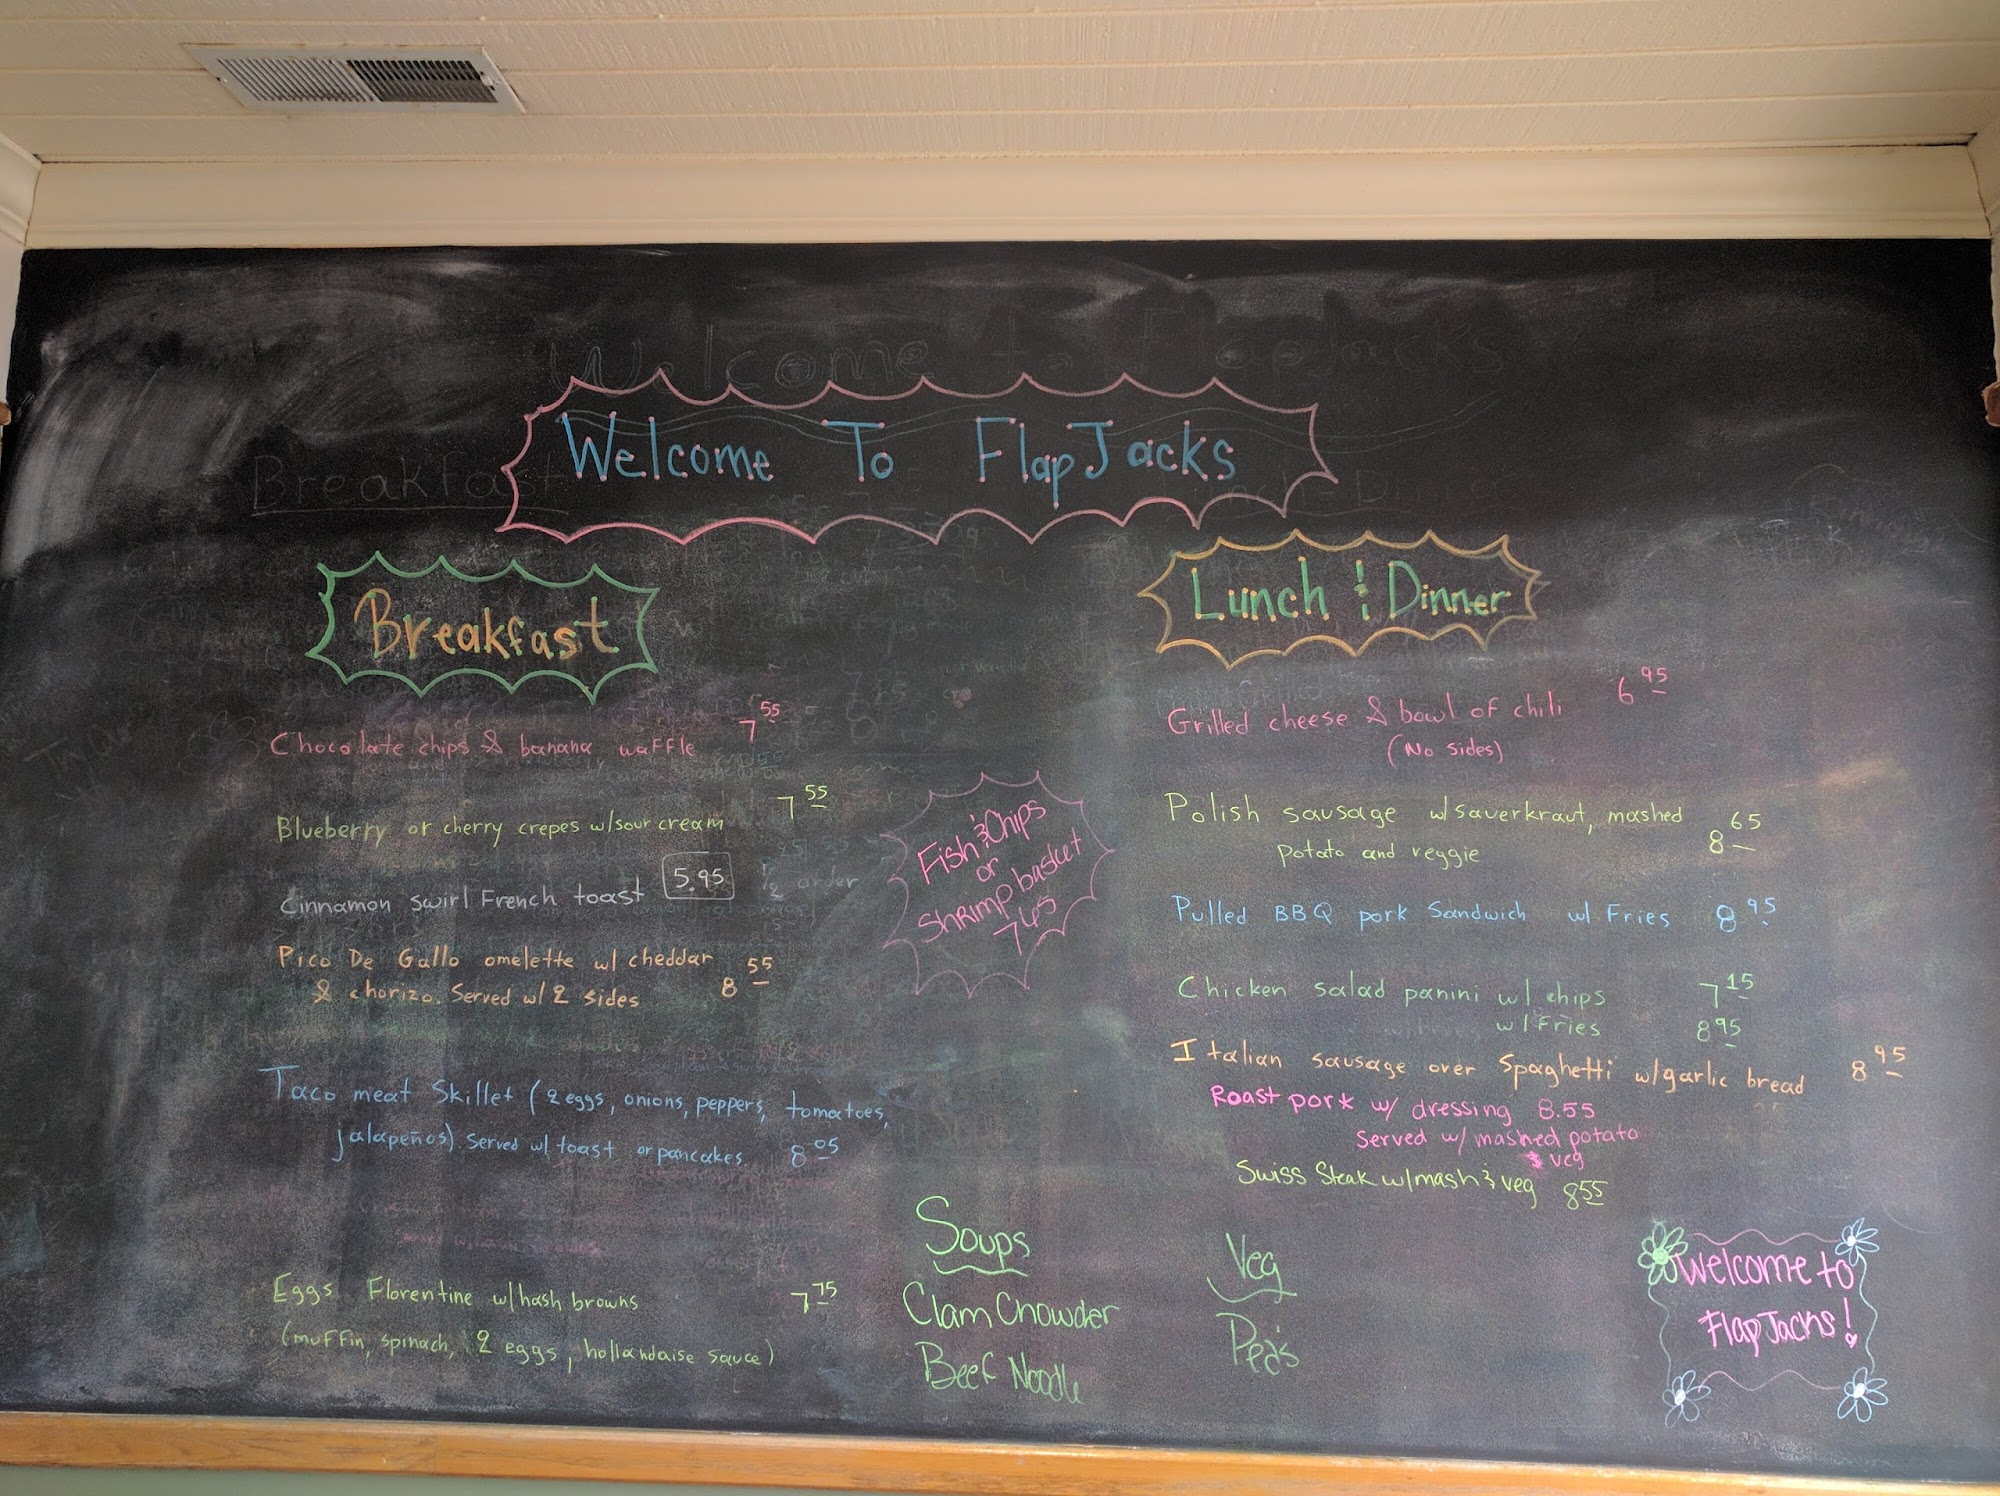 Welcome To FlapJacks
Breakfast
Chocolate chips & banana waffle 7 55
Blueberry or cherry crepes w/sour cream 7 55
Cinnamon swirl French toast 5.95 1/2 order
Pico De Gallo omelette w/ cheddar
& chorizo. Served w/ 2 sides 8 55
Taco meat Skillet (2 eggs, onions, peppers, tomatoes,
jalapeños) Served w/ toast or pancakes 8 05
Eggs Florentine w/hash browns 7 75
(muffin, spinach, 2 eggs, hollandaise sauce)
Fish & Chips
or
Shrimp basket
7 65
Soups
Clam Chowder
Beef Noodle
Veg
Pea's
Lunch & Dinner
Grilled cheese & bowl of chili 6 95
(No sides)
Polish sausage w/sauerkraut, mashed
potato and veggie 8 65
Pulled BBQ pork Sandwich w/ Fries 8 95
Chicken salad panini w/ chips 7 15
w/ Fries 8 95
Italian sausage over Spaghetti w/garlic bread 8 95
Roast pork w/ dressing 8.55
Served w/ mashed potato
& veg
Swiss Steak w/mash & veg 8 55
Welcome to
FlapJacks!
Welcome to FlapJacks
Breakfast